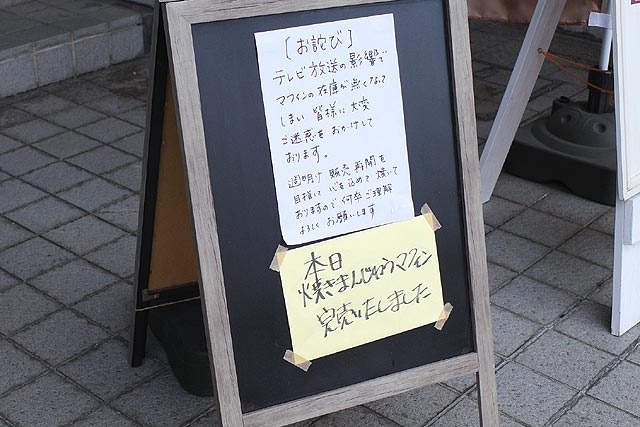 [お詫び]
テレビ放送の影響で
マフィンの在庫が無くなって
しまい 皆様に大変
ご迷惑を おかけして
おります。
週明け 販売再開を
目指して 心を込めて 焼いて
おりますので 何卒ご理解
よろしくお願いします
本日
焼きまんじゅうマフィン
完売いたしました